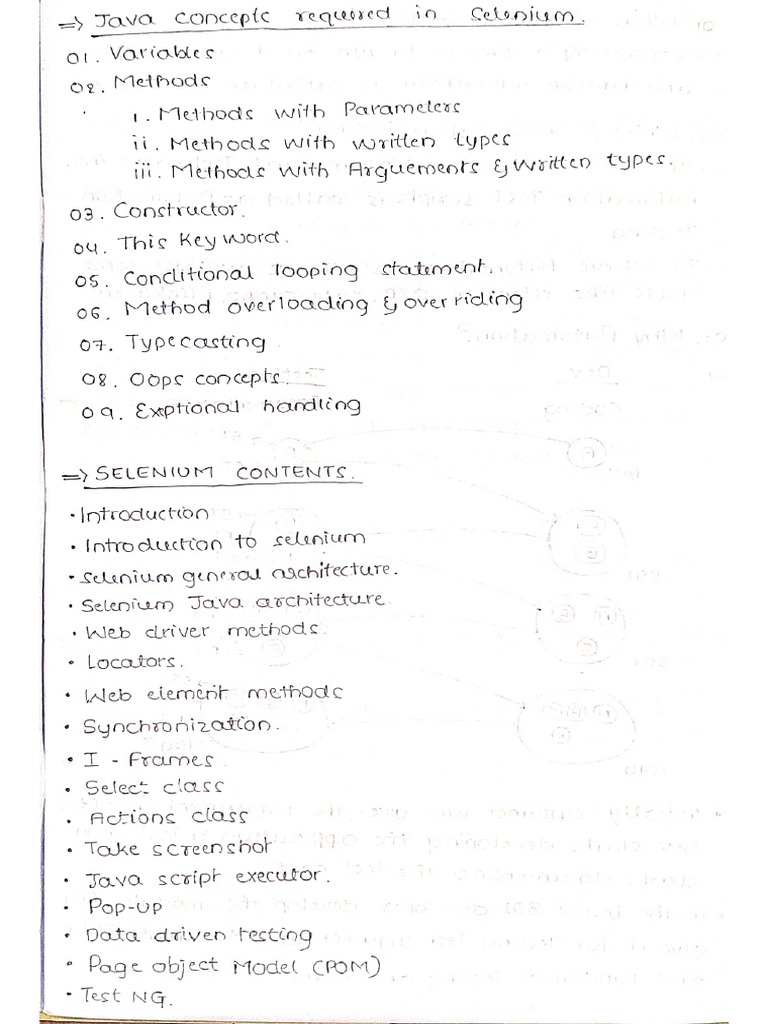 ⇒ Java concepts required in Selenium.
01. Variables
02. Methods
i. Methods with Parameters
ii. Methods with written types
iii. Methods with Arguements & written types.
03. Constructor.
04. This Keyword.
05. Conditional looping statement.
06. Method overloading & overriding
07. Typecasting
08. Oops concepts.
09. Exptional handling
⇒ SELENIUM CONTENTS.
· Introduction
· Introduction to selenium
· Selenium general architecture.
· Selenium Java architecture
· Web driver methods.
· Locators.
· Web element methods
· Synchronization.
· I - Frames
· Select class
· Actions class
· Take screenshot
· Java script executor.
· Pop-up
· Data driven testing
· Page object Model (POM)
· Test NG.